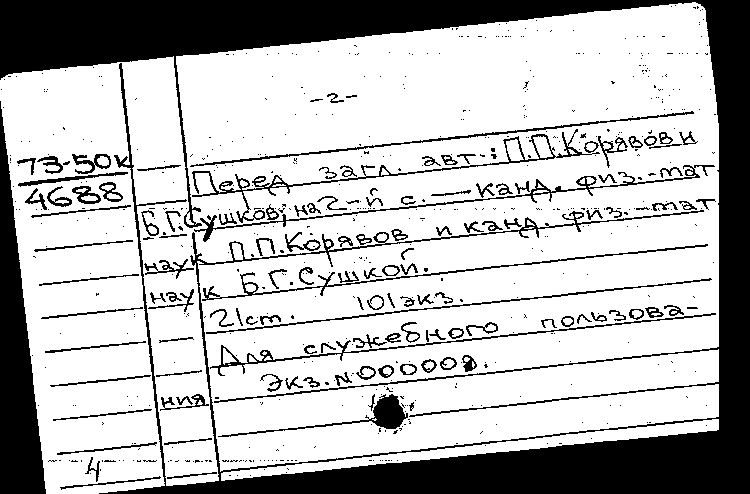 -2-
73-50к
4688
Перед загл. авт.: П.П.Корявов и
Б.Г.Сушков; на 2-й с. — канд. физ.-мат
наук П.П.Корявов и канд. физ.-мат
наук Б.Г.Сушкой.
21ст. 101экз.
Для служебного пользова-
ния. Экз.N000009.
4